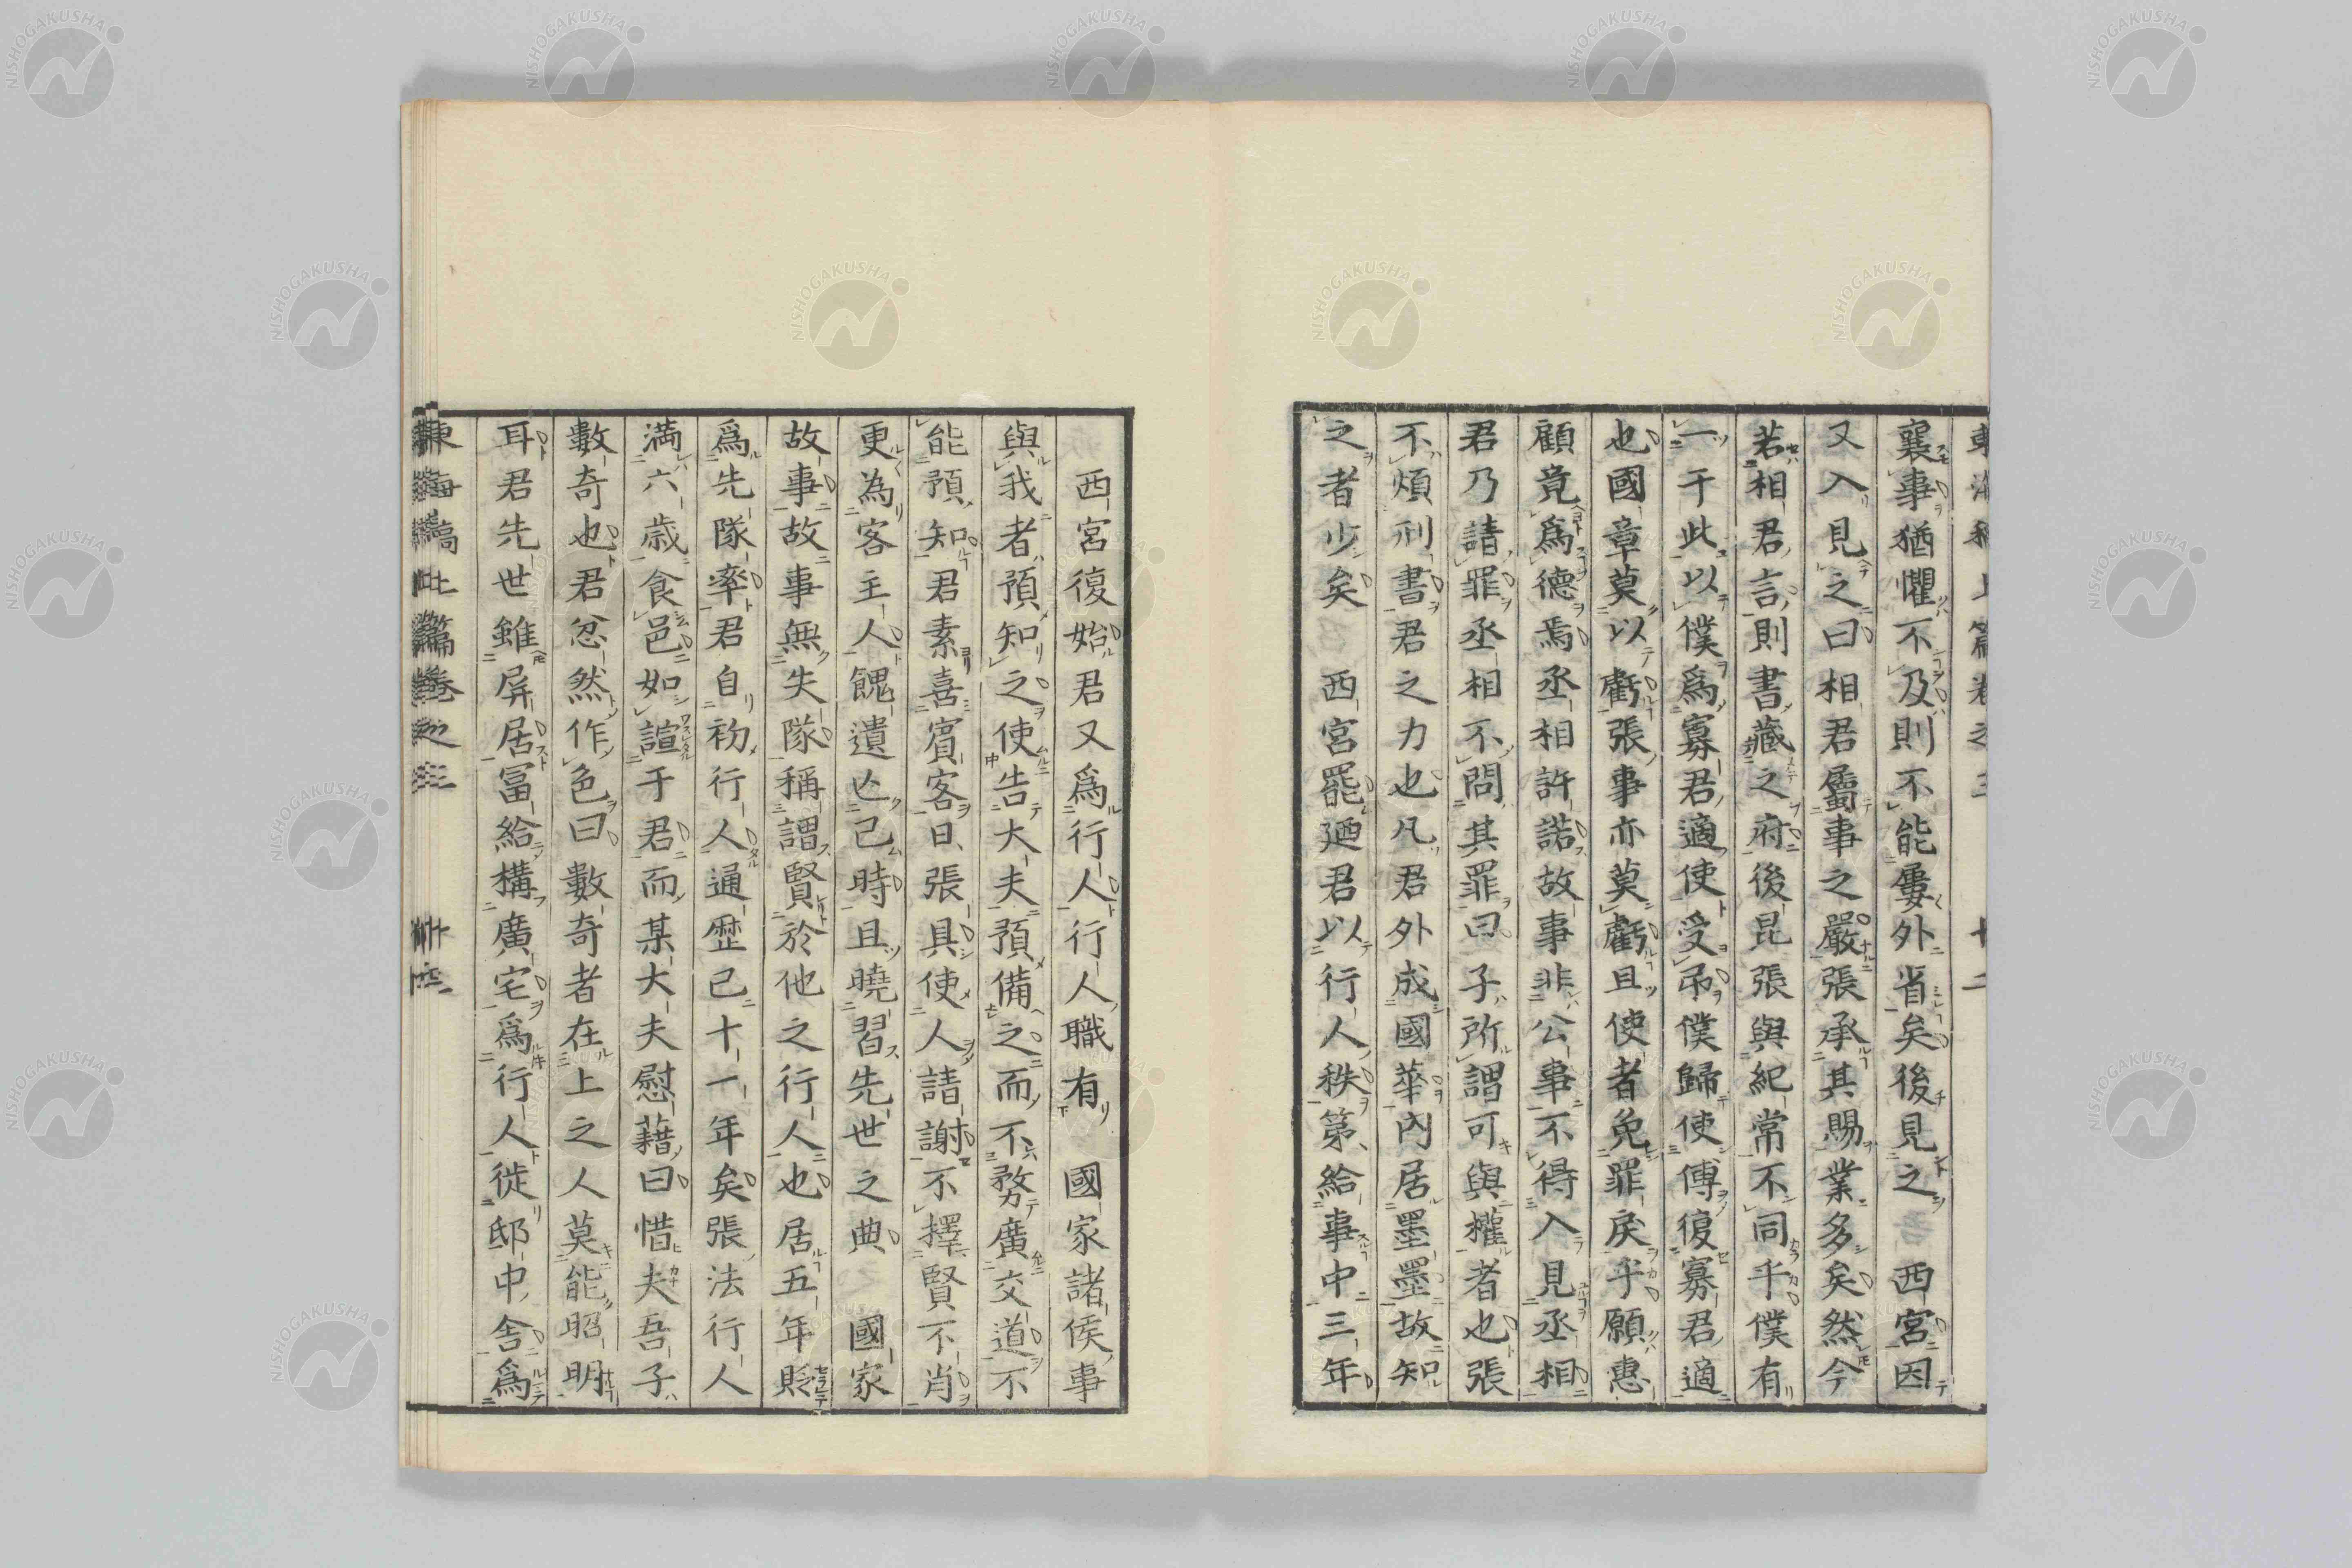 襄事猶懼不及則不能屢外省矣後見之　西宮因
又入見之曰相君屬事之嚴張承其賜業多矣然今
若相君言則書藏之府後昆張與紀常不同乎僕有
一于此以僕爲寡君適使受帛僕歸使傅復寡君適
也國章莫以虧張事亦莫虧且使者免罪戾乎願惠
顧竟爲德焉丞相許諾故事非公事不得入見丞相
君乃請罪丞相不問其罪曰子所謂可與權者也張
不煩刑書君之力也凡君外成國華內居墨墨故知
之者少矣　西宮罷廼君以行人秩第給事中三年
西宮復始君又爲行人行人職有　國家諸侯事
與我者預知之使告大夫預備之而不務廣交道不
能預知君素喜賓客日張具使人請謝不擇賢不肖
更為客主人餽遺亡已時且曉習先世之典　國家
故事故事無失隊稱謂賢於他之行人也居五年貶
爲先隊率君自初行人通歷已十一年矣張法行人
滿六歲食邑如諠于君而某大夫慰藉曰惜夫吾子
數奇也君忿然作色曰數奇者在上之人莫能昭明
耳君先世雖屏居富給構廣宅爲行人徙邸中舍爲